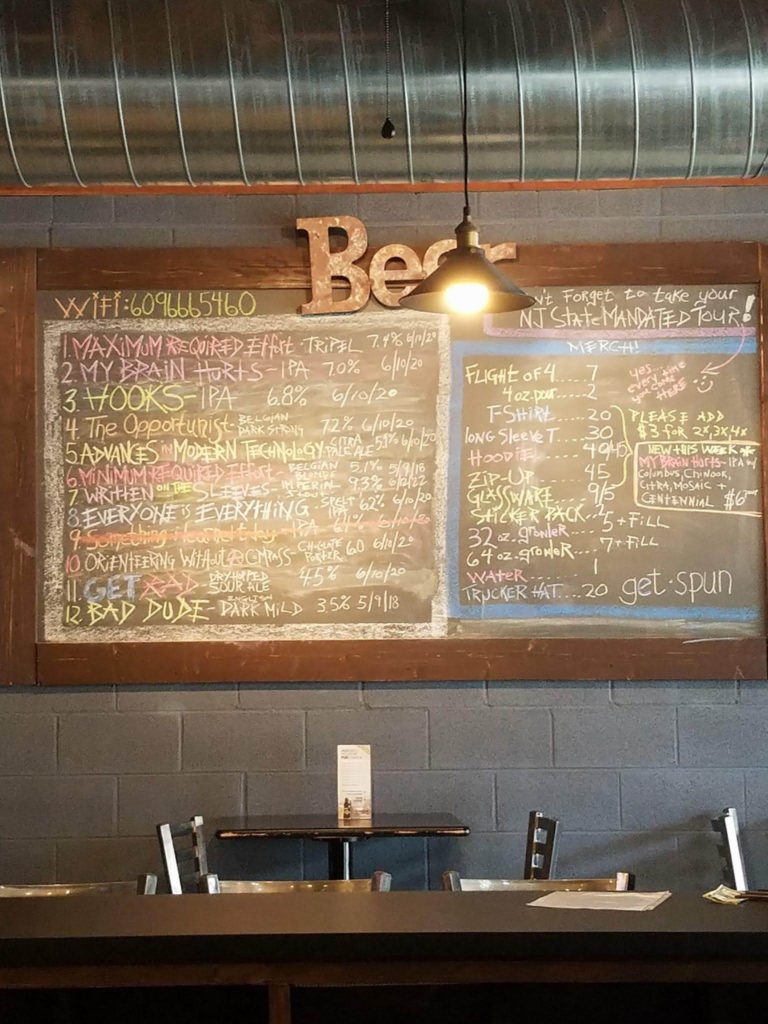 Beer
WiFi: 6096665460
1. MAXIMUM REQUIRED Effort - TRIPEL 7.4% 6/10/20
2. MY BRAIN HURTS - IPA 7.0% 6/10/20
3. HOOKS - IPA 6.8% 6/10/20
4. The Opportunist - BELGIAN DARK STRONG 7.2% 6/10/20
5. ADVANCES IN MODERN TECHNOLOGY CITRA PALE ALE 6/10/20
6. MINIMUM REQUIRED Effort - BELGIAN BLONDE 5.1%
7. WRITTEN ON THE SLEEVES - IMPERIAL STOUT 9.3%
8. EVERYONE is EVERYTHING SPELT IPA 6.2% 6/10/20
9. Something
10. ORIENTEERING WithOUT A COMPASS - PORTER 6.0 6/10/20
11. GET RAD - DRY-HOPPED SOUR ALE 4.5% 6/10/20
12. BAD DUDE - ENGLISH DARK MILD 3.5% 5/9/18
Forget to take your
NJ State MANDATED TOUR!
MERCH!
yes, every time
you come
HERE
FLIGHT OF 4 .... 7
4 oz. pour ..... 2
T-SHIRT ..... 20
lONG SLEEVE T..... 30
HOODIE ..... 40/45
ZIP-UP ..... 45
GLASSWARE .... 9/5
STICKER PACK ..
32 oz. growler ... 5 + Fill
64 oz. growler ... 7 + Fill
WATER ...... 1
TRUCKER HAT .... 20
PLEASE ADD
$3 for 2x, 3x, 4x
NEW THIS WEEK
MY BRAIN HURTS - IPA w/
COLUMBUS, CHINOOK,
CITRA, MOSAIC +
CENTENNIAL $6
get·spun